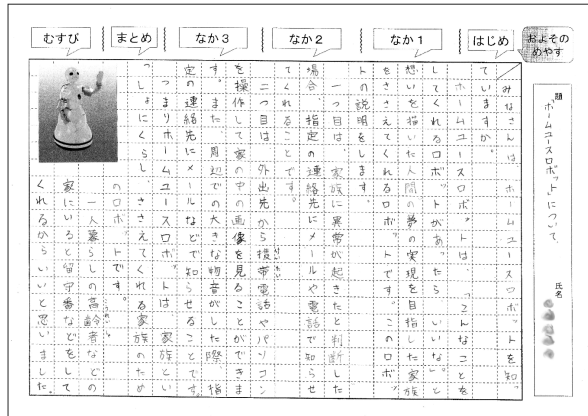 およその
めやす
はじめ
なか1
なか2
なか3
まとめ
むすび
題
「ホームユースロボット」について
氏名
みなさんは、ホームユースロボットを知っ
ていますか。
ホームユースロボットは、「こんなことを
してくれるロボットがあったら、いいな。」と
想いを描いた人間の夢の実現を目指した家族
をささえてくれるロボットです。このロボッ
トの説明をします。
一つ目は、家族に異常が起きたと判断した
場合、指定の連絡先にメールや電話で知らせ
てくれることです。
二つ目は、外出先から携帯電話やパソコン
を操作して家の中の画像を見ることができま
す。また、周辺での大きな物音がした際、指
定の連絡先にメールなどで知らせることです。
つまりホームユースロボットは、家族とい
っしょにくらし、ささえてくれる家族のため
のロボットです。
一人暮らしの高齢者などの
家にいると留守番などをして
くれるからいいと思いました。